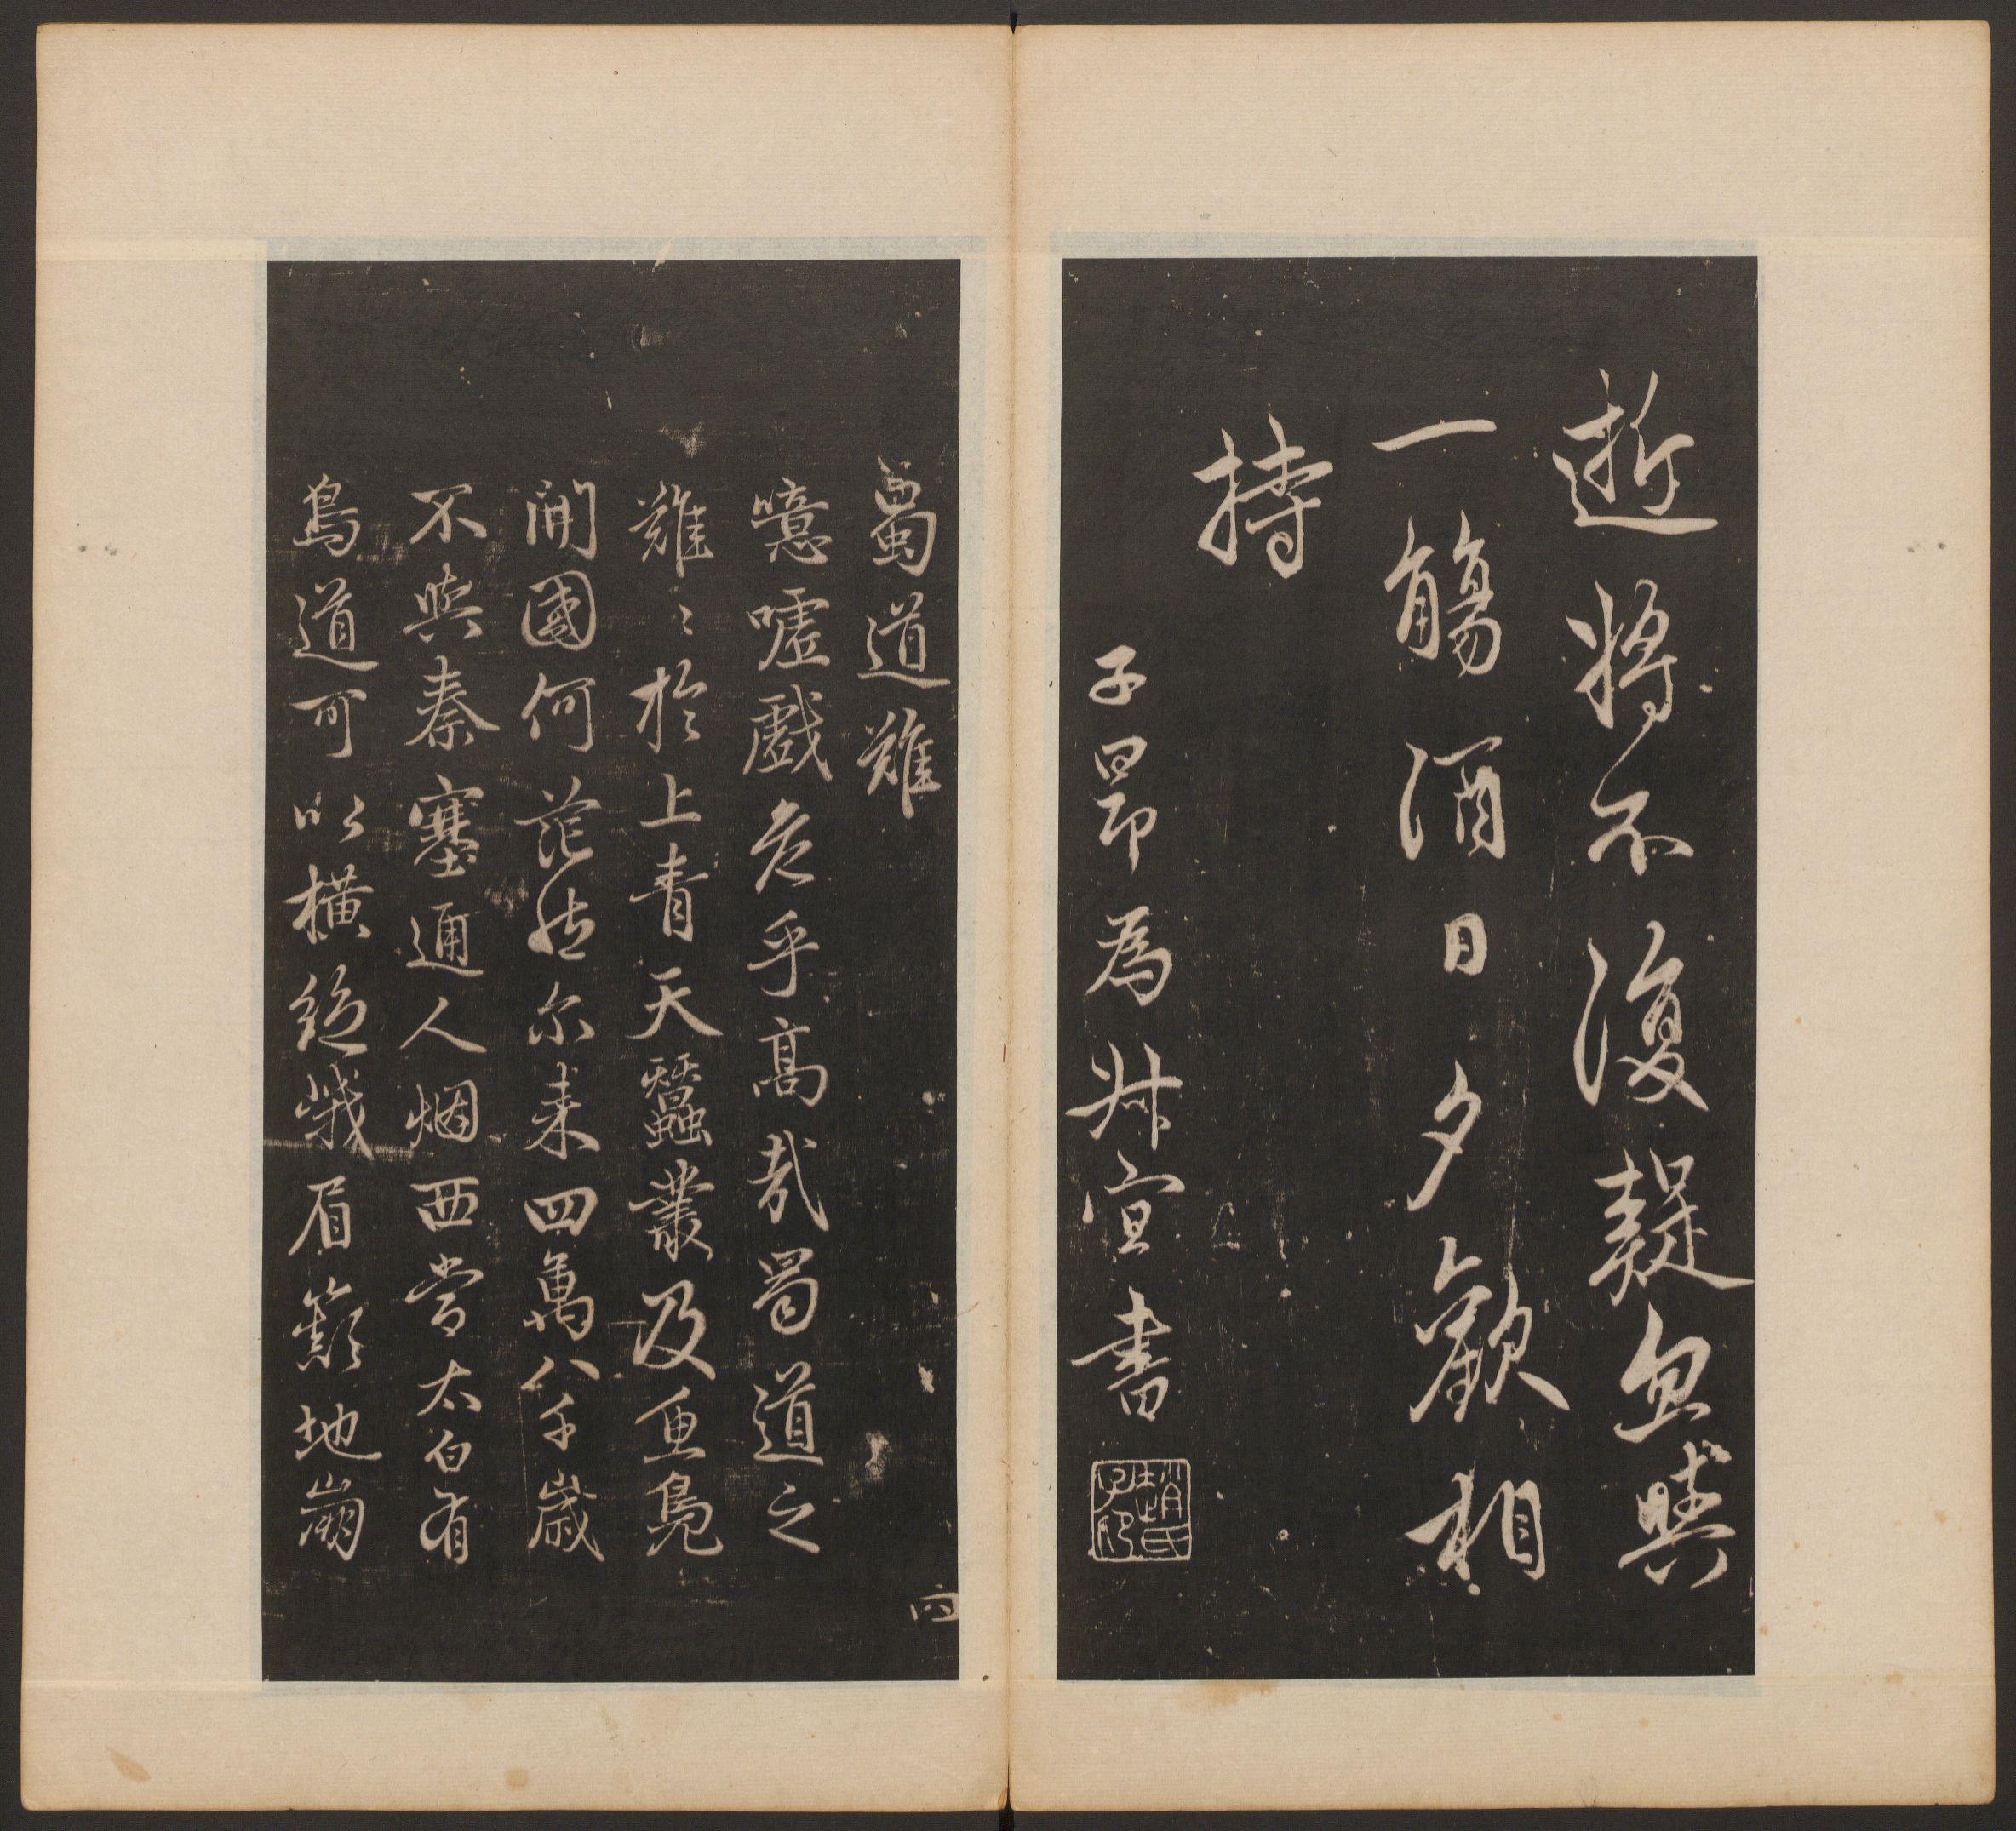 逝將不復疑忽與
一觴酒日夕歡相
持
子昂為叔宣書
趙氏子昂
蜀道難
噫嘘戲危乎高哉蜀道之
難〻於上青天蠶叢及魚鳧
開國何茫然尔来四萬八千歲
不與秦塞通人烟西當太白有
鳥道可以橫絕峨眉巔地崩
四